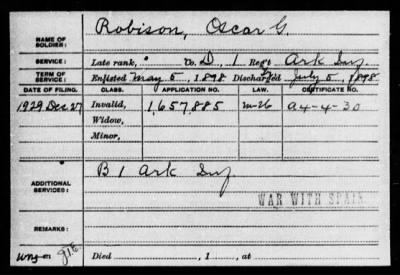 NAME OF SOLDIER: Robison, Oscar G.
SERVICE: Late rank, Co. D, 1 Reg't Ark Inf.
TERM OF SERVICE: Enlisted May 5, 1898 Discharged July 5, 1898
DATE OF FILING. CLASS. APPLICATION NO. LAW. CERTIFICATE NO.
1929 Dec 27 Invalid, 1,657,885 m-26 A4-4-30
Widow,
Minor,
ADDITIONAL SERVICES: B 1 Ark Inf
WAR WITH SPAIN
REMARKS:
Died , 1 , at